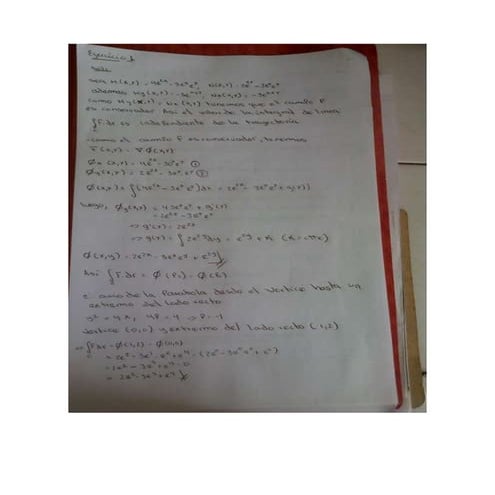 Ejercicio 1
Sea M(x,y) = 4e^2x - 3e^x e^y, N(x,y) = 2e^2y - 3e^x e^y
además My(x,y) = -3e^x+y, Nx(x,y) = -3e^x+y
como My(x,y) = Nx(x,y) tenemos que el camto F
es conservador. Así el valor de la integral de línea
∫ F·dr es independiente de la trayectoria
c
como el camto F es conservador, tenemos
F(x,y) = ∇φ(x,y)
φx(x,y) = 4e^2x - 3e^x e^y ①
φy(x,y) = 2e^2y - 3e^x e^y ②
φ(x,y) = ∫(4e^2x - 3e^x e^y)dx = 2e^2x - 3e^x e^y + g(y)
Luego, φy(x,y) = -3e^x e^y + g'(y)
= 2e^2y - 3e^x e^y
⇒ g'(y) = 2e^2y
⇒ g(y) = ∫ 2e^2y dy = e^2y + K
φ(x,y) = 2e^2x - 3e^x e^y + e^2y
Así ∫ F·dr = φ(P2) - φ(P1)
c: arco de la Parabola desde el vertice hasta un
extremo del lado recto
y² = 4x, 4P = 4 ⇒ P = 1
vertice (0,0) y extremo del lado recto (1,2)
⇒ ∫ F·dr = φ(1,2) - φ(0,0)
= 2e² - 3e¹·e² + e⁴ - (2e⁰ - 3e⁰e⁰ + e⁰)
= 2e² - 3e³ + e⁴ - 0
= 2e² - 3e³ + e⁴